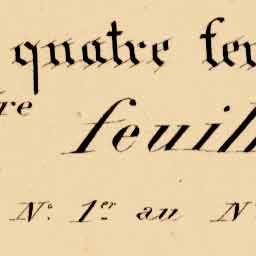 quatre feu
re feuill
N.º 1.er au N